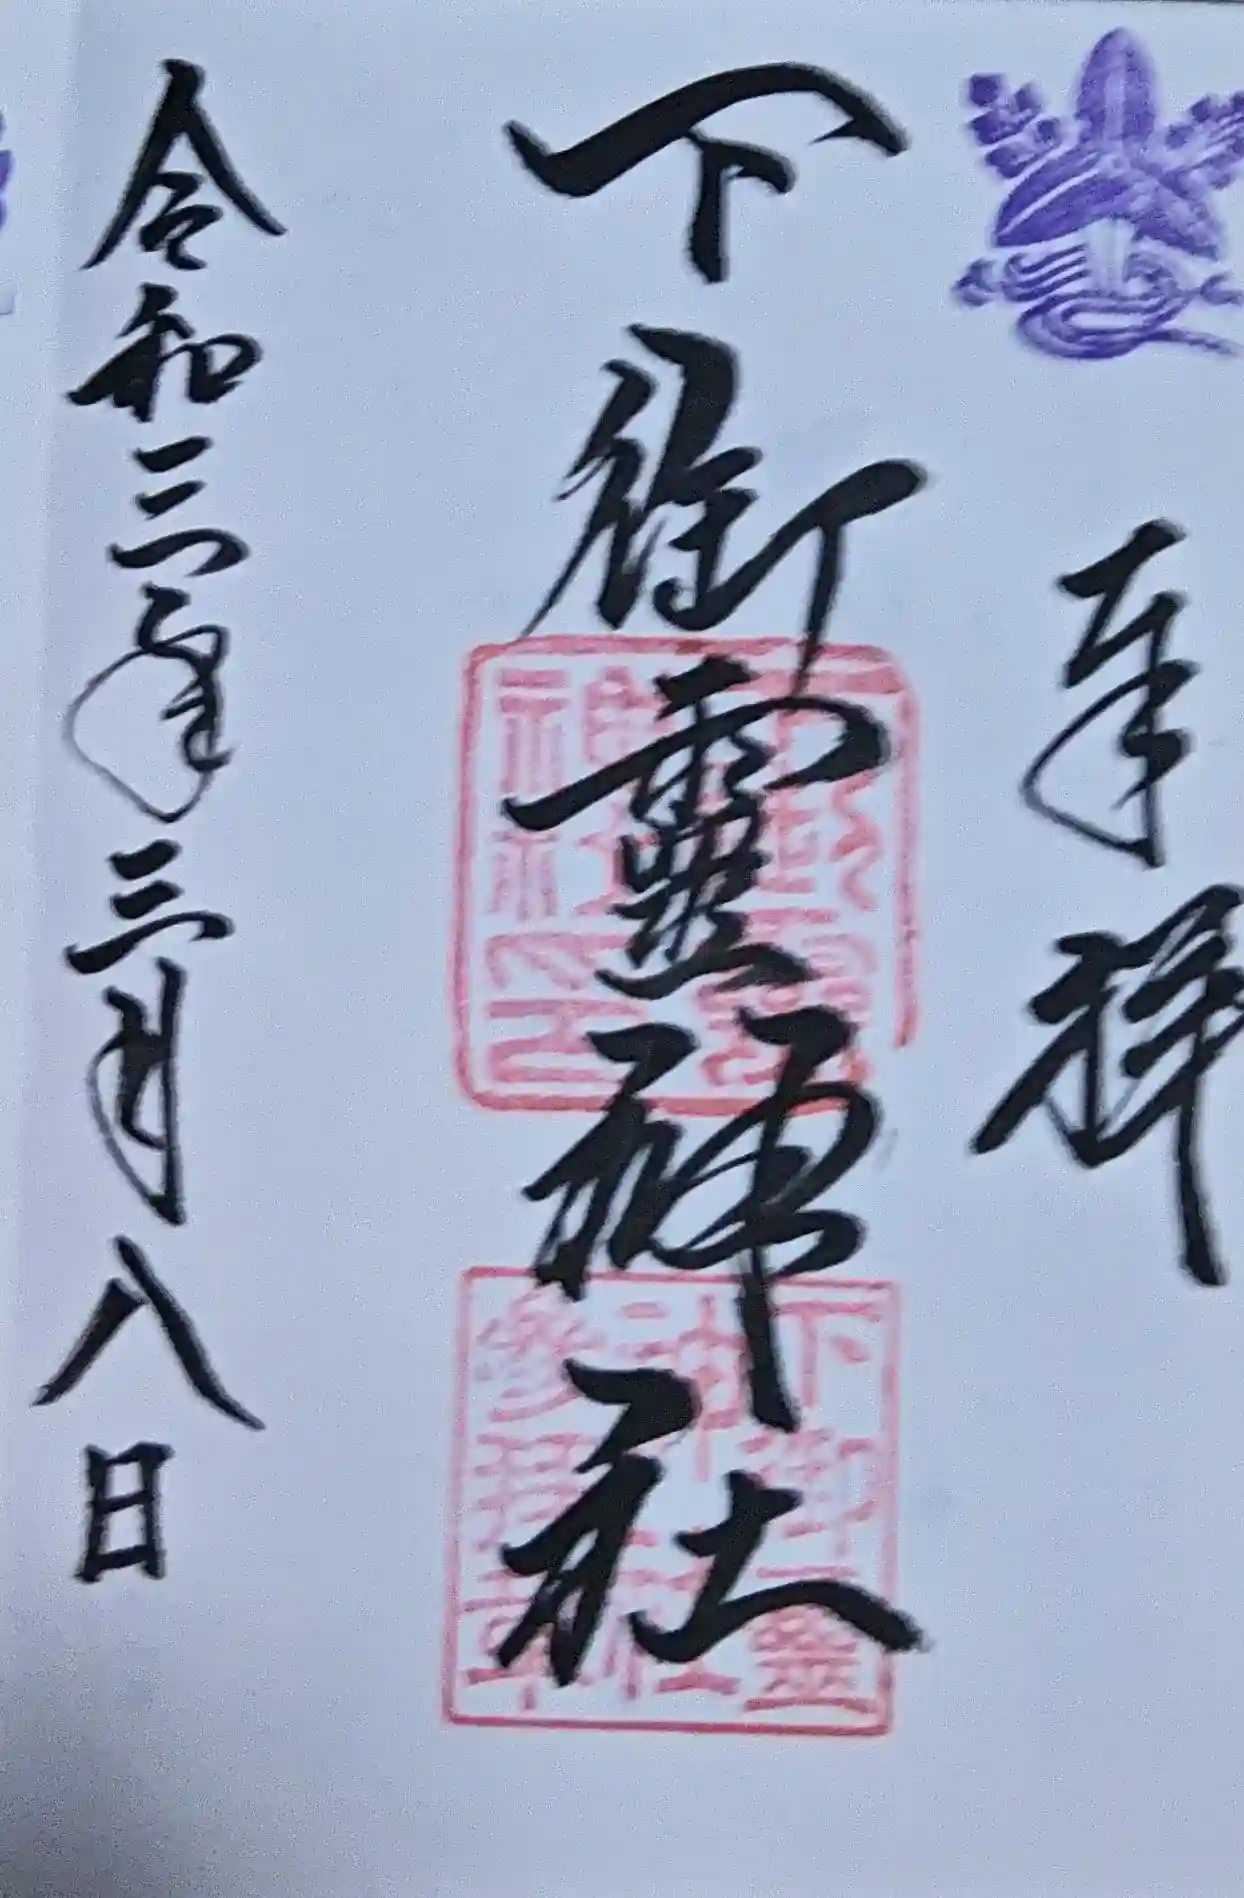 奉拝
下御靈神社
令和三年三月八日
下御霊神社参拝章